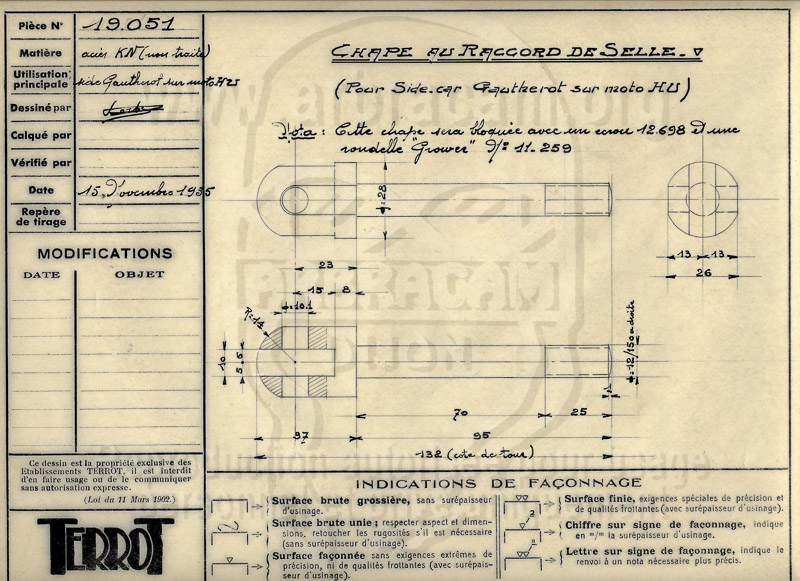 Pièce N° 19.051
Matière acier KN (non traité)
Utilisation principale side Gautherot sur moto HU
Dessiné par
Calqué par
Vérifié par
Date 15 Novembre 1935
Repère de tirage
MODIFICATIONS
DATE OBJET
Ce dessin est la propriété exclusive des
Etablissements TERROT, il est interdit
d'en faire usage ou de le communiquer
sans autorisation expresse.
(Loi du 11 Mars 1902.)
TERROT
CHAPE AU RACCORD DE SELLE.
(Pour Side-car Gautherot sur moto HU)
Nota : Cette chape sera bloquée avec un ecrou 12.698 et une
rondelle "Grower" N°: 11-259
=28
13 13
26
23
15 8
=10.1
R=14
10
5.5
=12/150 à droite
1
70 25
37 95
132 (cote de tour)
INDICATIONS DE FAÇONNAGE
Surface brute grossière, sans surépaisseur
d'usinage.
Surface brute unie ; respecter aspect et dimen-
sions, retoucher les rugosités s'il est nécessaire
(sans surépaisseur d'usinage).
Surface façonnée sans exigences extrêmes de
précision, ni de qualités frottantes (avec surépais-
seur d'usinage).
Surface finie, exigences spéciales de précision et
de qualités frottantes (avec surépaisseur d'usinage).
Chiffre sur signe de faconnage, indique
en m/m la surépaisseur d'usinage.
Lettre sur signe de façonnage, indique le
renvoi à un nota nécessaire plus précis.
AMBRACAM
DIJON